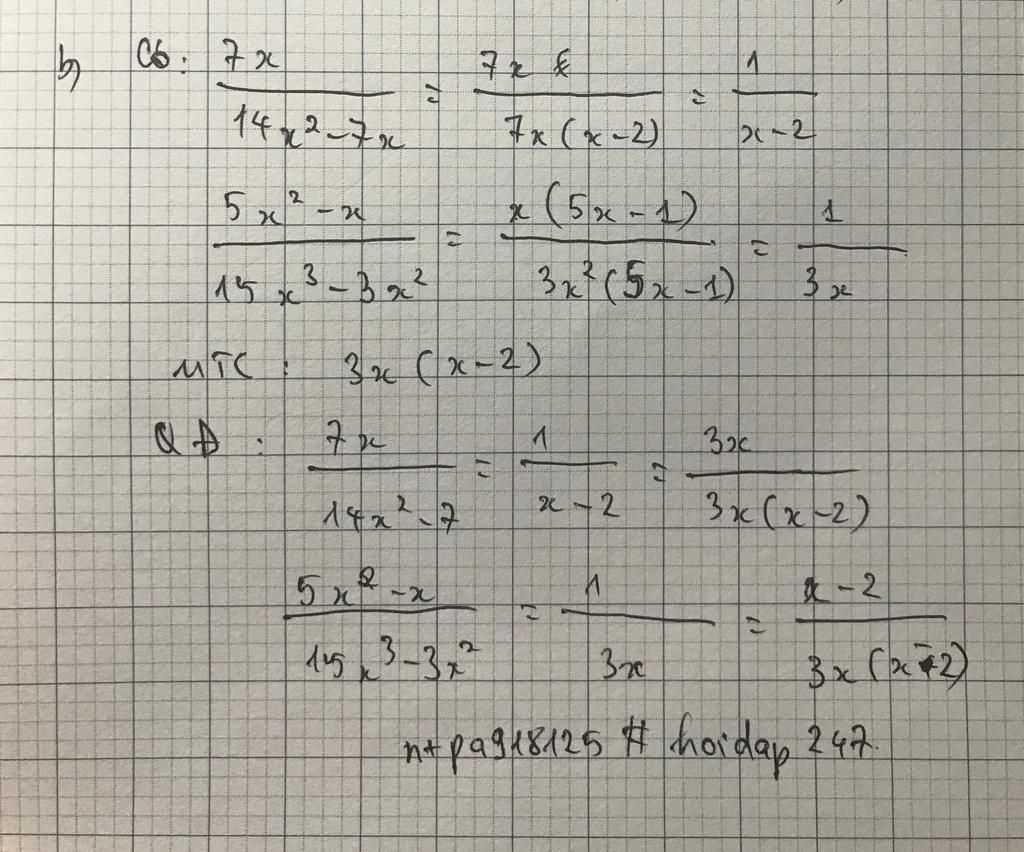 b) Có: 7x / 14x² - 7x = 7x / 7x(x-2) = 1 / x-2
5x² - x / 15x³ - 3x² = x(5x-1) / 3x²(5x-1) = 1 / 3x
MTC : 3x(x-2)
QĐ : 7x / 14x² - 7 = 1 / x-2 = 3x / 3x(x-2)
5x² - x / 15x³ - 3x² = 1 / 3x = x-2 / 3x(x-2)
n+pa918125 # hoidap 247.